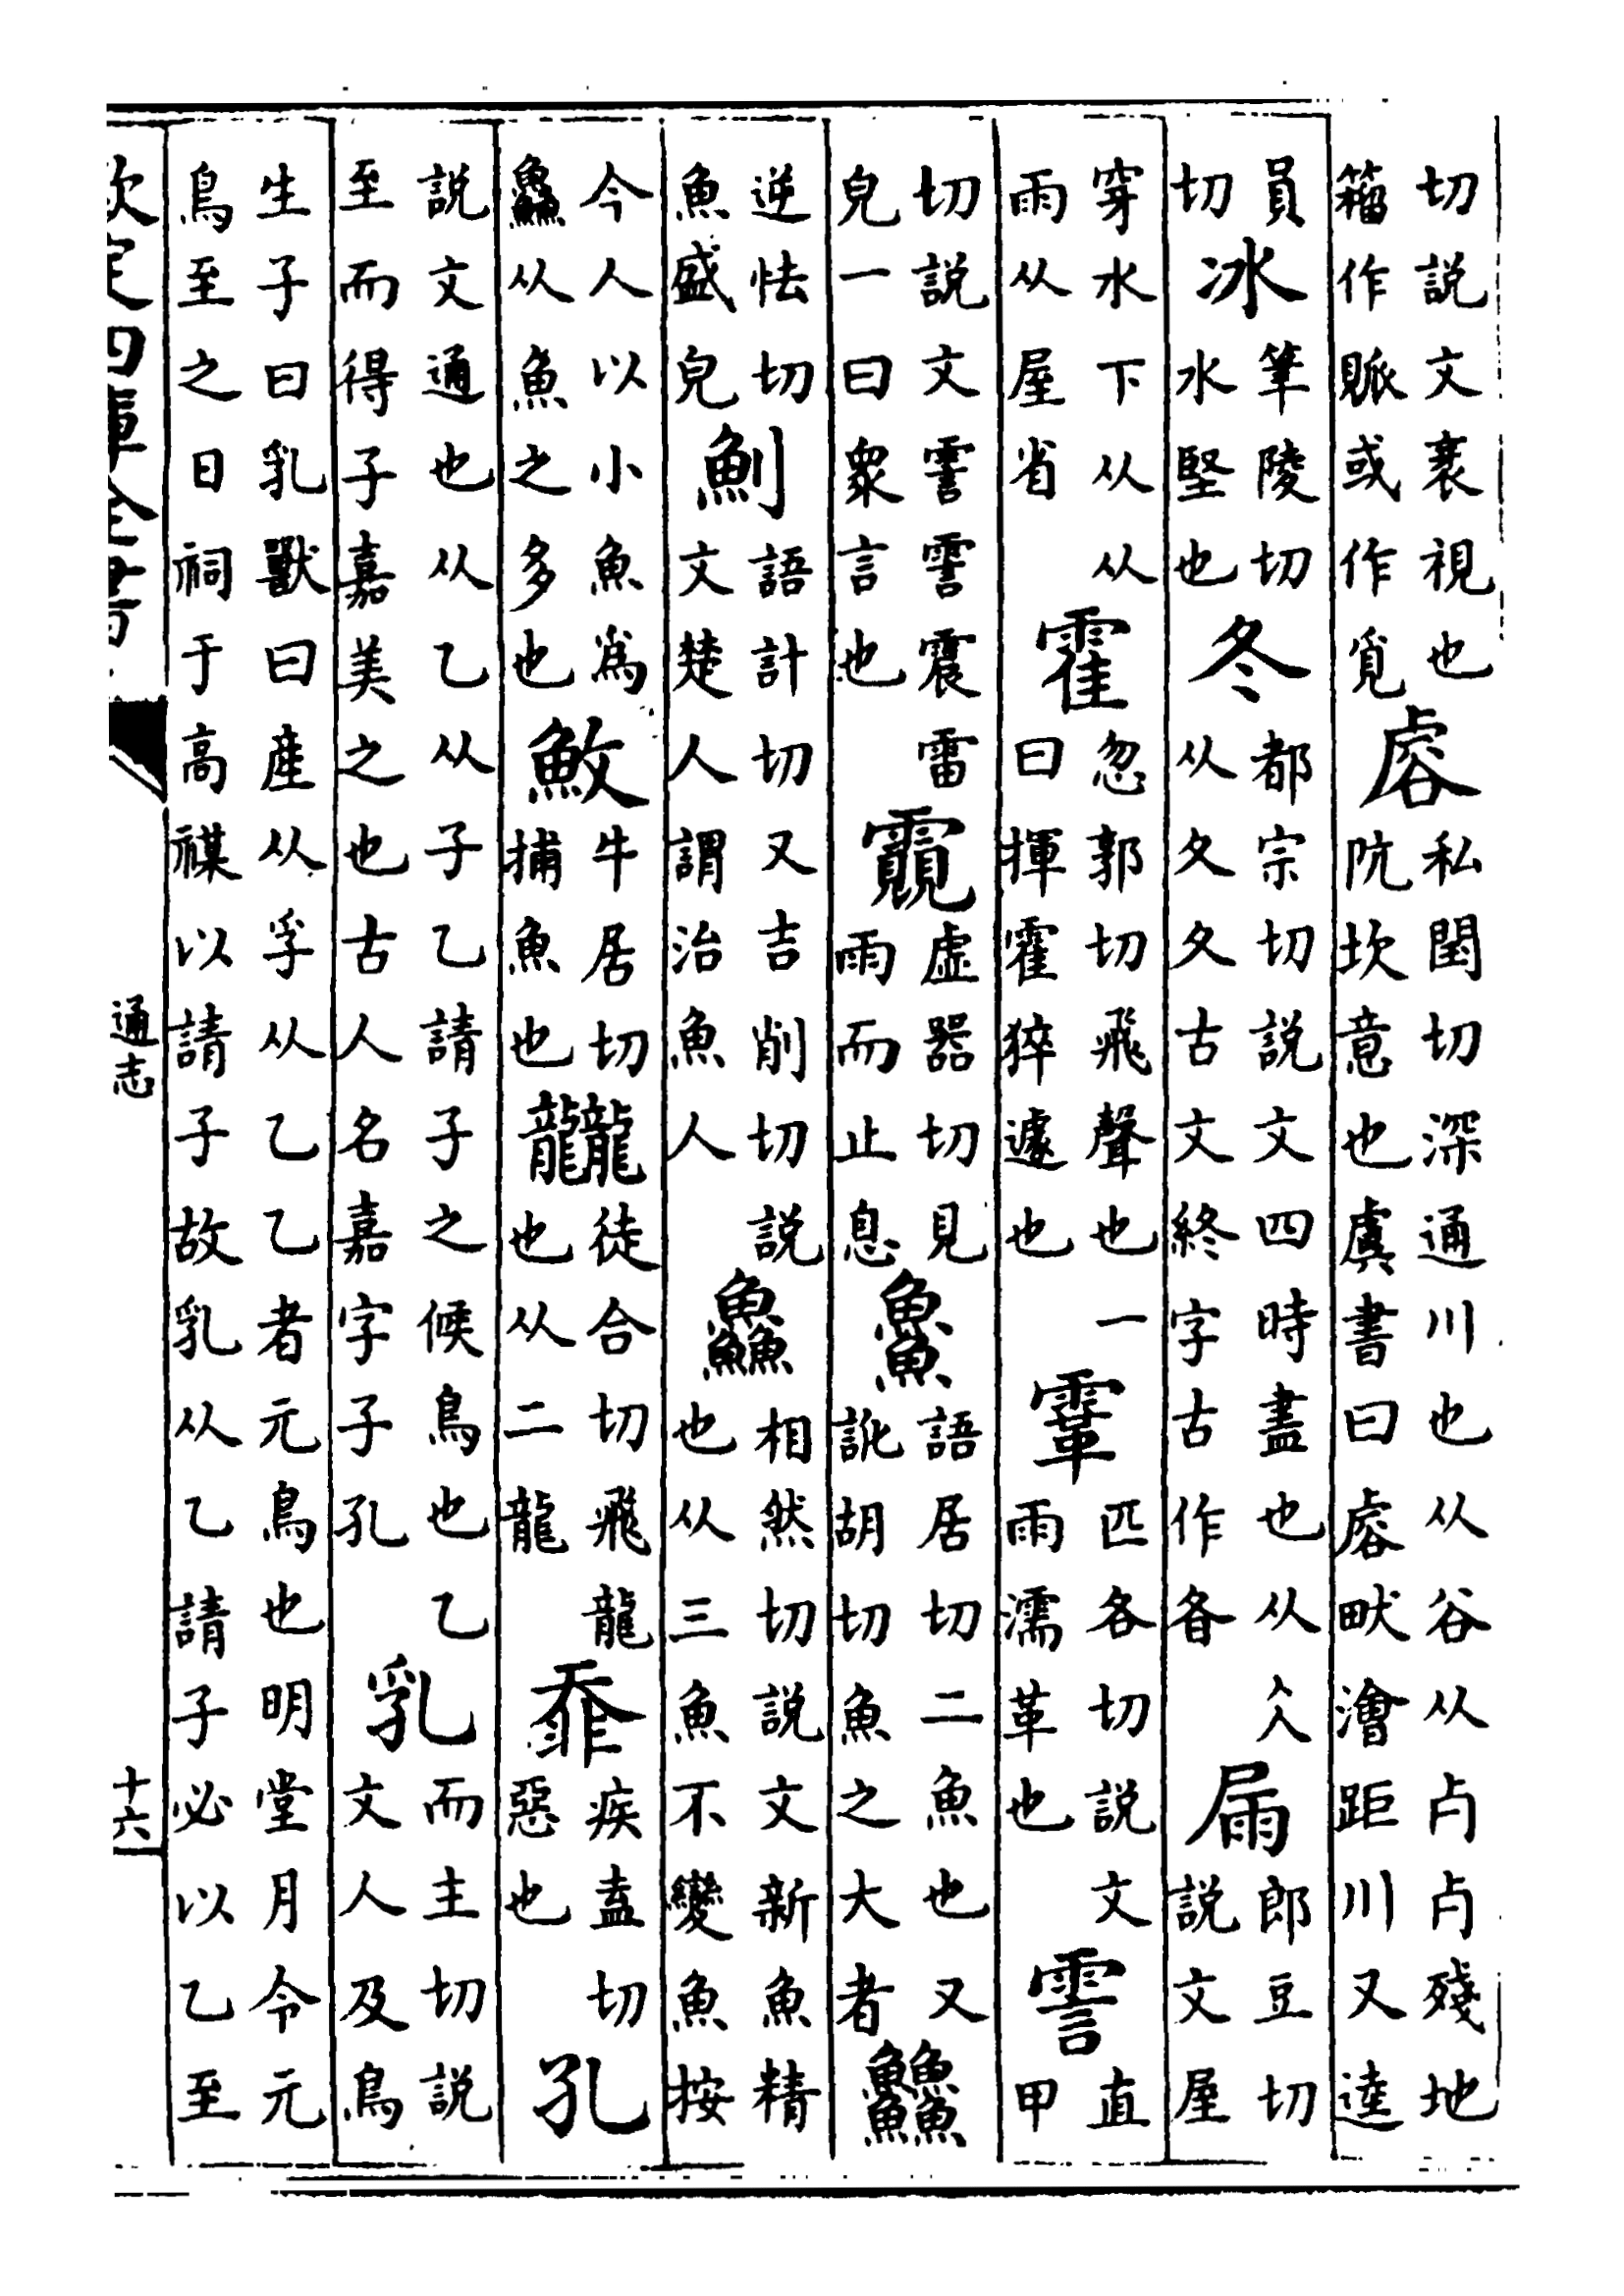 切說文衺視也籀作𧖴或作覓㕡私閏切深通川也从谷从卢卢殘地阬坎意也虞書曰㕡畎澮距川又逹
員切冰筆陵切水堅也冬都宗切說文四時盡也从仌从夂夂古文終字古作昝屚郎豆切說文屋
穿水下从从雨从屋省霍忽郭切飛聲也一曰揮霍猝遽也䨣匹各切說文雨濡革也霅直甲
切說文霅霅震雷皃一曰衆言也虛器切見雨而止息䲆語居切二魚也又訛胡切魚之大者䲜
逆怯切魚盛皃魝語計切又吉削切說文楚人謂治魚人鱻相然切說文新魚精也从三魚不變魚按
今人以小魚爲鱻从魚之多也䰻牛居切捕魚也龖徒合切飛龍也从二龍疾盍切惡也孔
說文通也从乙从子乙請子之候鳥也乙至而得子嘉美之也古人名嘉字子孔乳而主切說文人及鳥
生子曰乳獸曰產从孚从乙乙者元鳥也明堂月令元鳥至之日祠于高禖以請子故乳从乙請子必以乙至
欽定四庫全書
通志
十六